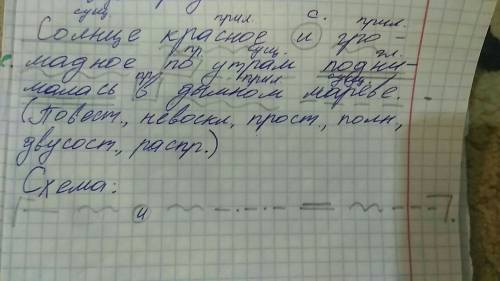 сущ. прил. с. прил.
Солнце красное и гро-
пр. сущ. гл.
с. мадное по утрам подни-
пр. прил. сущ.
малась в дымном мареве.
(Повест., невоскл, прост., полн,
двусост., распр.)
Схема:
и